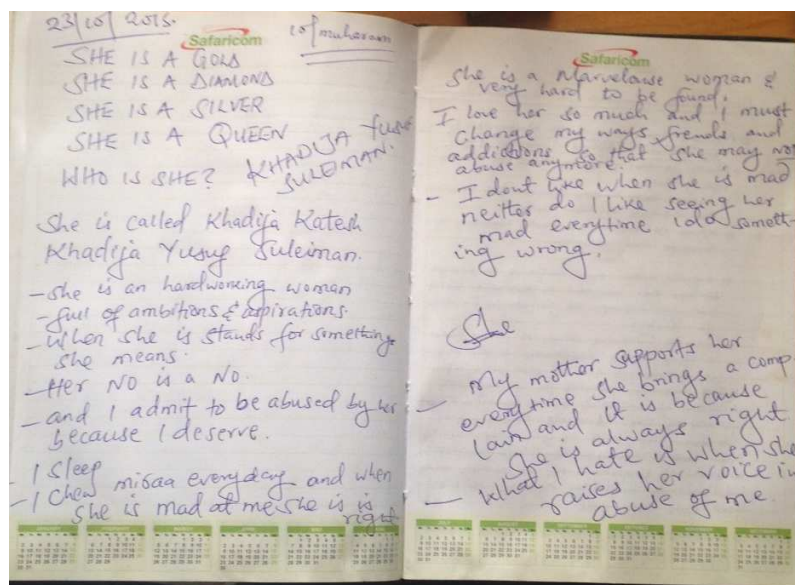 23/10/2015.
Safaricom
10/muharam
SHE IS A GOLD
SHE IS A DIAMOND
SHE IS A SILVER
SHE IS A QUEEN
WHO IS SHE? KHADIJA YUSUF
SULEIMAN.
She is called Khadija Katesh
Khadija Yusuf Suleiman.
- She is an hardworking woman
- full of ambitions & aspirations.
- When she is stands for something
she means.
- Her NO is a NO.
- and I admit to be abused by her
because I deserve.
- I Sleep
- I Chew miraa everyday and when
she is mad at me she is is
right
JANUARY FEBRUARY MARCH APRIL MAY JUNE
Safaricom
She is a Marvelouse woman &
very hard to be found.
I love her so much and I must
Change my ways, frends and
addictions so that she may not
abuse anymore.
- I dont like when she is mad
neitter do I like seeing her
mad everytime I do somett-
ing wrong.
She
- My mother supports her
everytime she brings a comp
lain and it is because
She is always right
- What I hate is when she
raises her voice in
abuse of me.